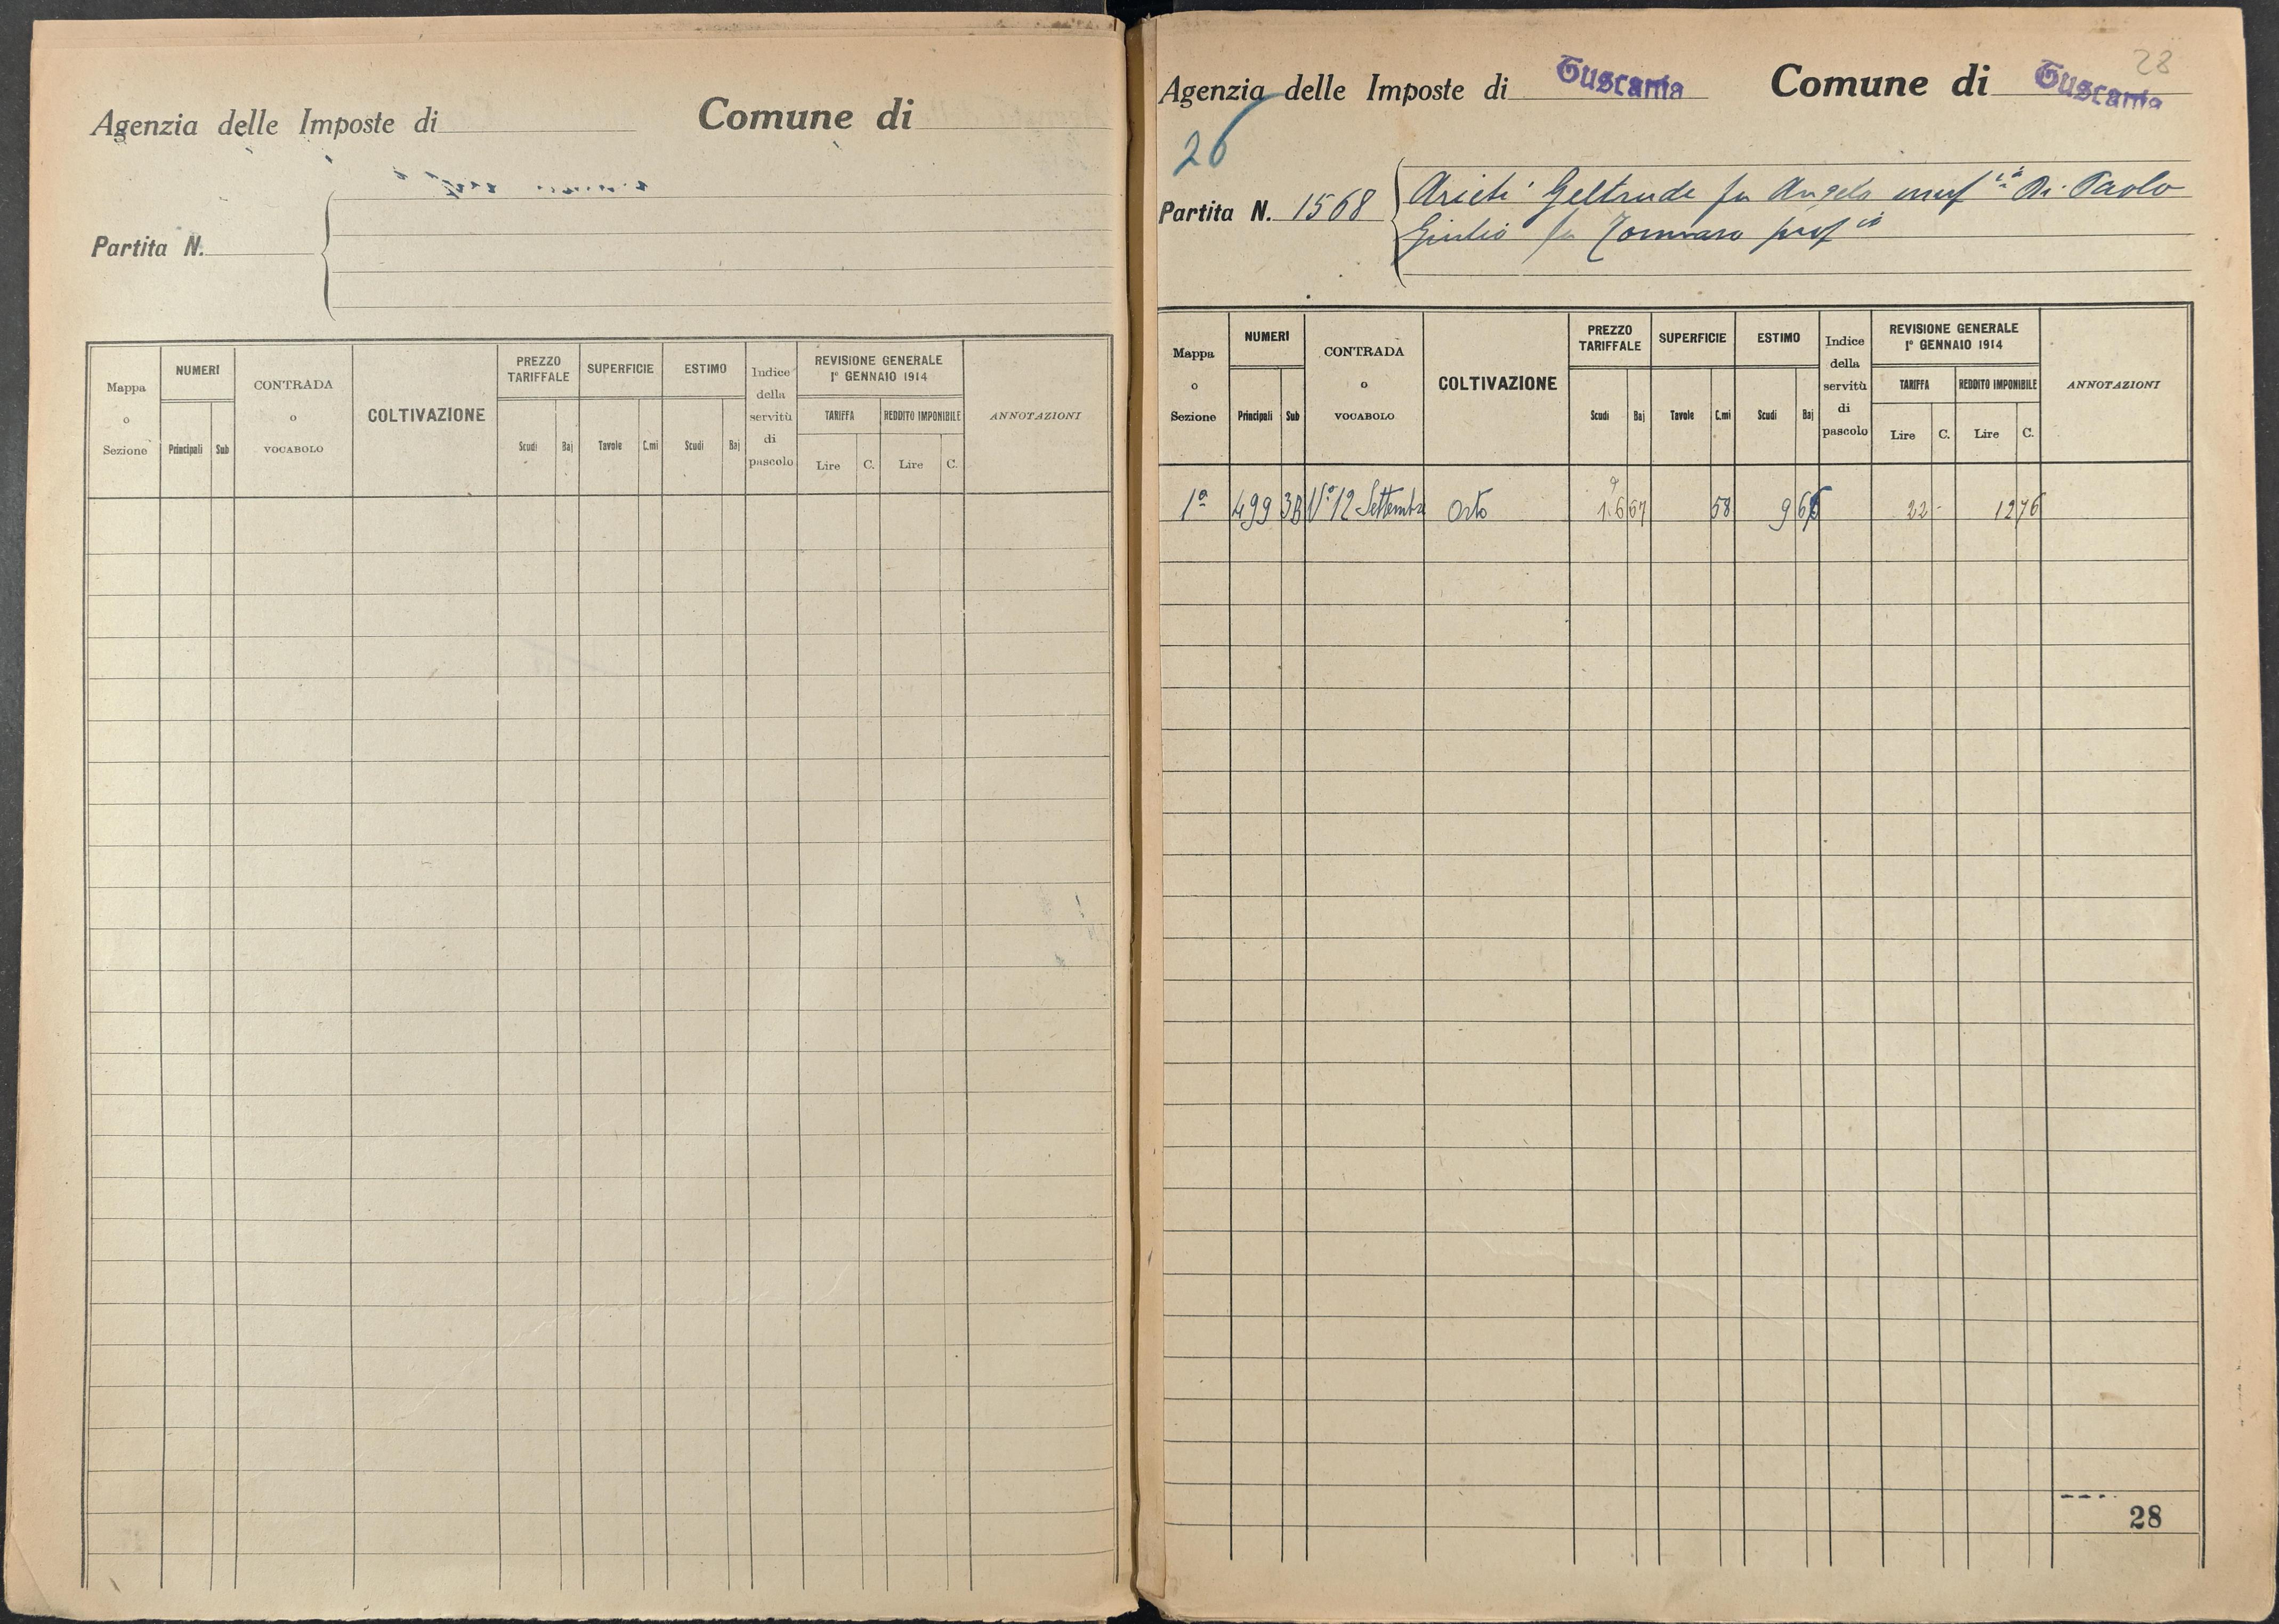 Agenzia delle Imposte di Comune di
Partita N.
Mappa o Sezione
NUMERI
Principali Sub
CONTRADA o VOCABOLO
COLTIVAZIONE
PREZZO TARIFFALE
Scudi Baj
SUPERFICIE
Tavole C.mi
ESTIMO
Scudi Baj
Indice della servitù di pascolo
REVISIONE GENERALE
1º GENNAIO 1914
TARIFFA REDDITO IMPONIBILE
Lire C. Lire C.
ANNOTAZIONI
28
Agenzia delle Imposte di Tuscania Comune di Tuscania
26
Partita N. 1568
Arieti Geltrude fu Angelo usuf.ia Di Paolo
Giulio fu Tommaso prop.io
Mappa o Sezione
NUMERI
Principali Sub
CONTRADA o VOCABOLO
COLTIVAZIONE
PREZZO TARIFFALE
Scudi Baj
SUPERFICIE
Tavole C.mi
ESTIMO
Scudi Baj
Indice della servitù di pascolo
REVISIONE GENERALE
1º GENNAIO 1914
TARIFFA REDDITO IMPONIBILE
Lire C. Lire C.
ANNOTAZIONI
1ª 499 3B Vº 12 Settembre Orto 58 22 - 12 76
28